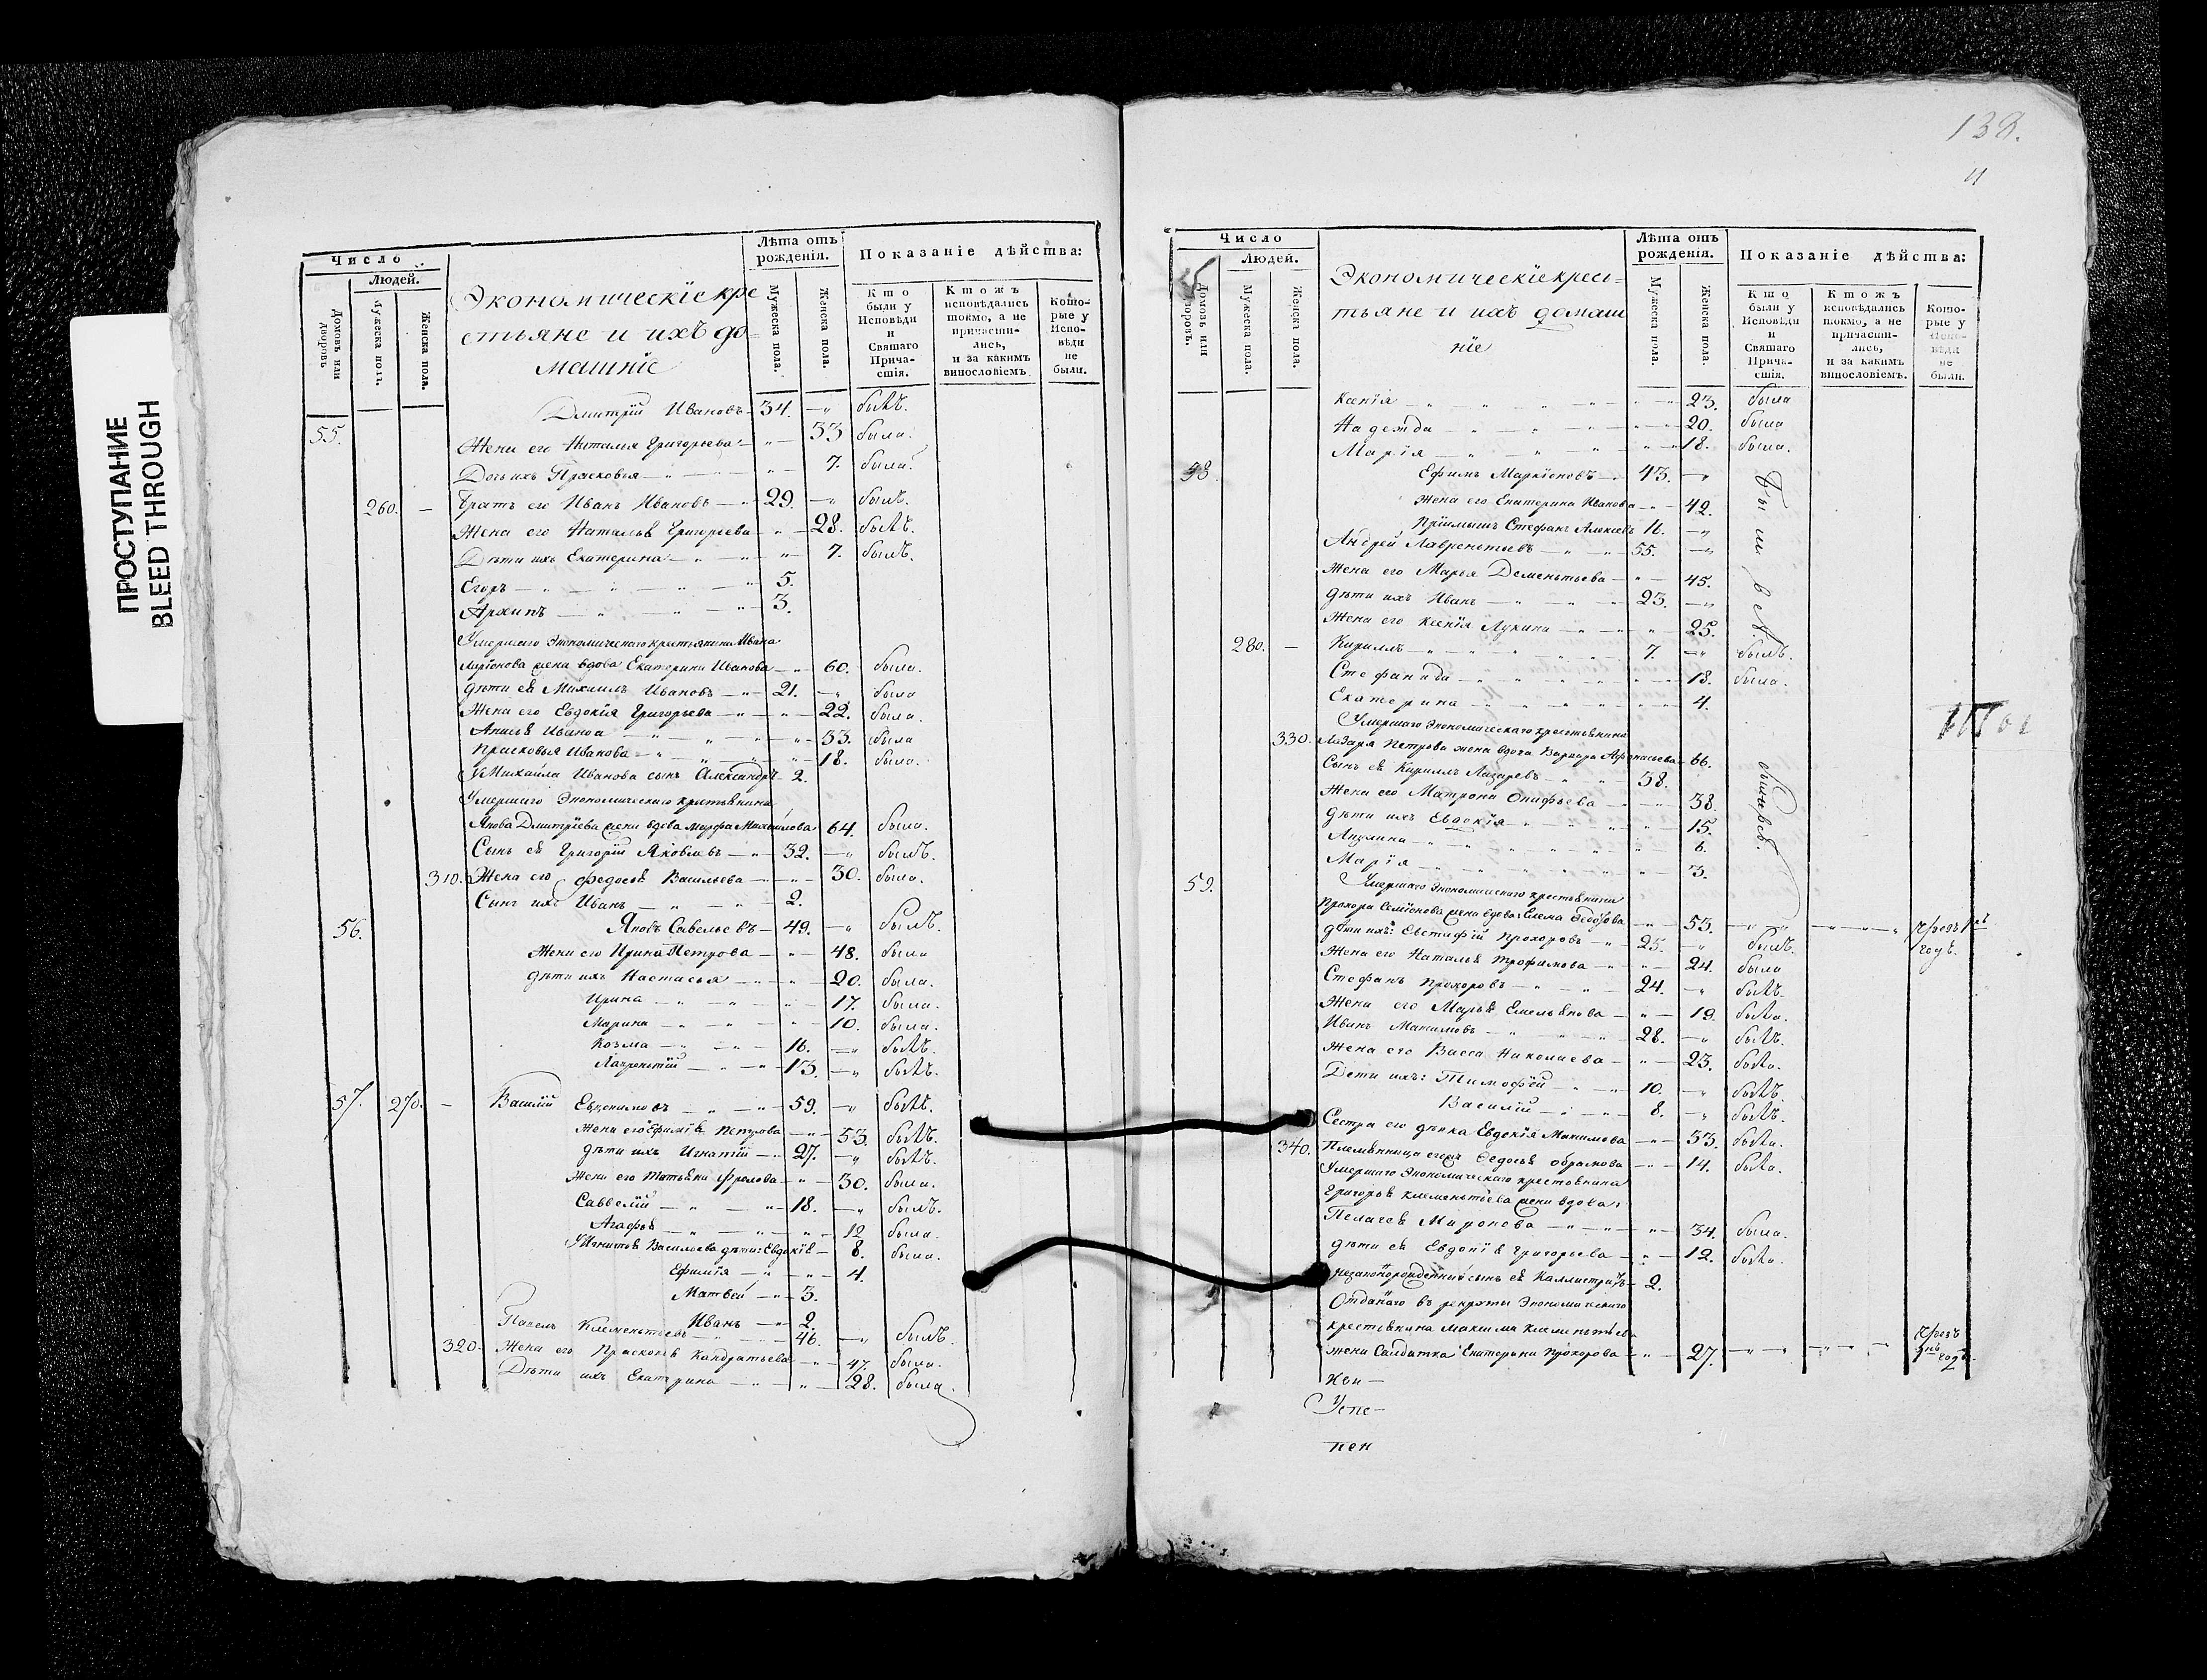 ПРОСТУПАНИЕ
BLEED THROUGH
Число
Людей.
Домовъ или дворовъ
Мужеска полу.
Женска пола.
Экономическіе кре
стьяне и ихъ до=
машніе
Лѣта отъ рожденія.
Мужеска пола.
Женска пола.
Показаніе дѣйства:
Кто были у Исповѣди и Святаго Причастія.
Ктожъ исповѣдались токмо, а не причастились, и за какимъ винословіемъ.
Которые у Исповѣди не были.
Дмитрій Ивановъ 34. былъ.
55.
Жена его Наталия Григорьева 33 была.
Дочь ихъ Прасковья 7. была.
260. Братъ его Иванъ Ивановъ 29. былъ.
Жена его Наталья Григорьева 28. былъ.
Дѣти ихъ Екатерина 7. былъ.
Егоръ 5.
Архипъ 3.
Умершаго Экономическаго крестьянина Ивана
жена вдова Екатерина Иванова 60. была.
дѣти ея Михаилъ Ивановъ 21. была
Жена его Евдокія Григорьева 22. была.
Иванова 33. была
Прасковья Иванова 18. была.
У Михаила Иванова сынъ Александръ 2.
Умершаго Экономическаго крестьянина
Якова Дмитріева жена вдова Марфа Михайлова 64. была.
Сынъ ея Григорій Яковлевъ 32. былъ.
310. Жена его Федосья Васильева 30. была.
Сынъ ихъ Иванъ 2.
56. Яковъ Савельевъ 49. былъ.
Жена его Ирина Петрова 48. была
дѣти ихъ Настасья 20. была.
Ирина 17. была.
Марина 10. была.
Козма 16. былъ.
Лаврентій 13. былъ.
57. 270. Василій 59. былъ.
Жена его Ефимія Петрова 53. былъ.
дѣти ихъ Игнатій 27. былъ.
Жена его Татьяна Фролова 30. была.
Савелій 18. былъ.
Агафья 12 была.
У Игнатья Васильева дѣти: Евдокія 8. была.
Ефимія 4.
Матвей 3.
Иванъ 2.
Павелъ Клементьевъ 46. былъ.
320. Жена его Прасковья Кондратьева 47. была.
Дѣти ихъ Екатерина 28. была.
138.
Число
Людей.
Домовъ или дворовъ.
Мужеска пола.
Женска пола.
Экономическіе крес=
тьяне и ихъ домаш
ніе
Лѣта отъ рожденія.
Мужеска пола.
Женска пола.
Показаніе дѣйства:
Кто были у Исповѣди и Святаго Причастія.
Ктожъ исповѣдались токмо, а не причастились, и за какимъ винословіемъ.
Которые у Исповѣди не были.
Ксенія 23. была
Надежда 20. была
Марія 18. была.
58 Ефимъ Маркіеновъ 43.
Жена его Екатерина Иванова 42.
Пріимышъ Стефанъ Алексеевъ 16.
Андрей Лаврентьевъ 55.
Жена его Марья Дементьева 45.
дѣти ихъ Иванъ 23.
Жена его Ксенія Лукина 25.
280. Кириллъ 7. былъ.
Стефанида 18. была.
Екатерина 4.
Умершаго Экономическаго крестьянина
330. Лазаря Петрова жена вдова Варвара Афонасьева 66.
Сынъ ея Кириллъ Лазаревъ 38.
Жена его Матрона Онифьева 38.
дѣти ихъ Евдокія 15.
Акулина 6.
Марія 3.
59. Умершаго Экономическаго крестьянина
Прохора Семіонова жена вдова Елена 53.
дѣти ихъ: Евстафій Прохоровъ 25. былъ. годъ.
Жена его Наталья Трофимова 24. была
Стефанъ Прохоровъ 24. былъ.
Жена его Марья Емельянова 19. была.
Иванъ Макимовъ 28. былъ.
Жена его Васса Николаева 23. была.
Дети ихъ: Тимофѣй 10. былъ.
Василій 8. былъ.
Сестра его дѣвка Евдокія Макимова 53. была.
340. Племянница Федосья Абрамова 14. была.
Умершаго Экономическаго крестьянина
Григорья Клементьева жена вдова:
Пелагея Миронова 34. была.
дѣти ея Евдокія Григорьева 12. была.
Незаконорожденный сынъ ея Каллистратъ 2.
Отданаго въ рекруты Экономическаго
крестьянина Максима Клементьева
жена Салдатка Екатерина Прохорова 27. годъ.
Успе-